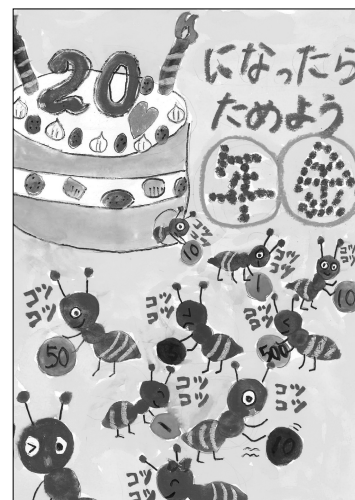 20
になったら
ためよう
年金
コツ
コツ
10
コツ
コツ
1
コツ
コツ
10
コツ
コツ
50
コツ
コツ
コツ
コツ
500
コツ
コツ
1
コツ
コツ
10